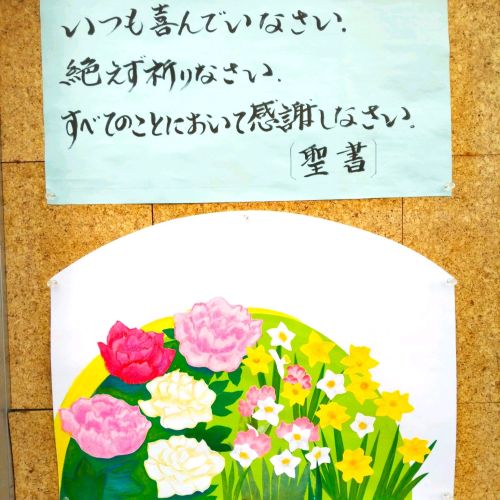 いつも喜んでいなさい.
絶えず祈りなさい.
すべてのことにおいて感謝しなさい.
〔聖書〕